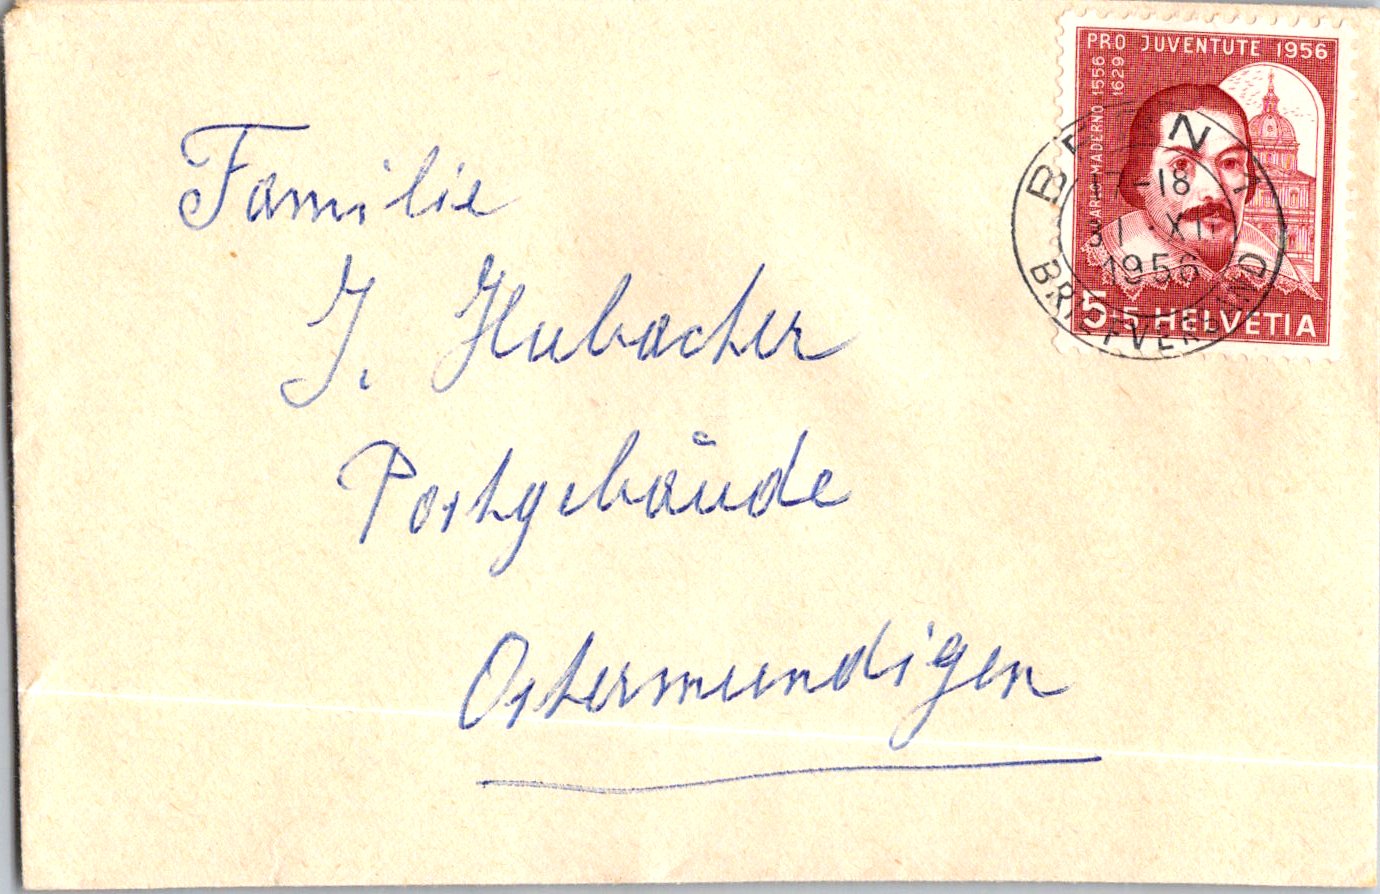 PRO JUVENTUTE 1956
CARLO MADERNO 1556
1629
5+5 HELVETIA
BERN 1
-18
31.XII
1956
BRIEFVERSAND
Familie
J. Hubacher
Postgebäude
Ostermundigen